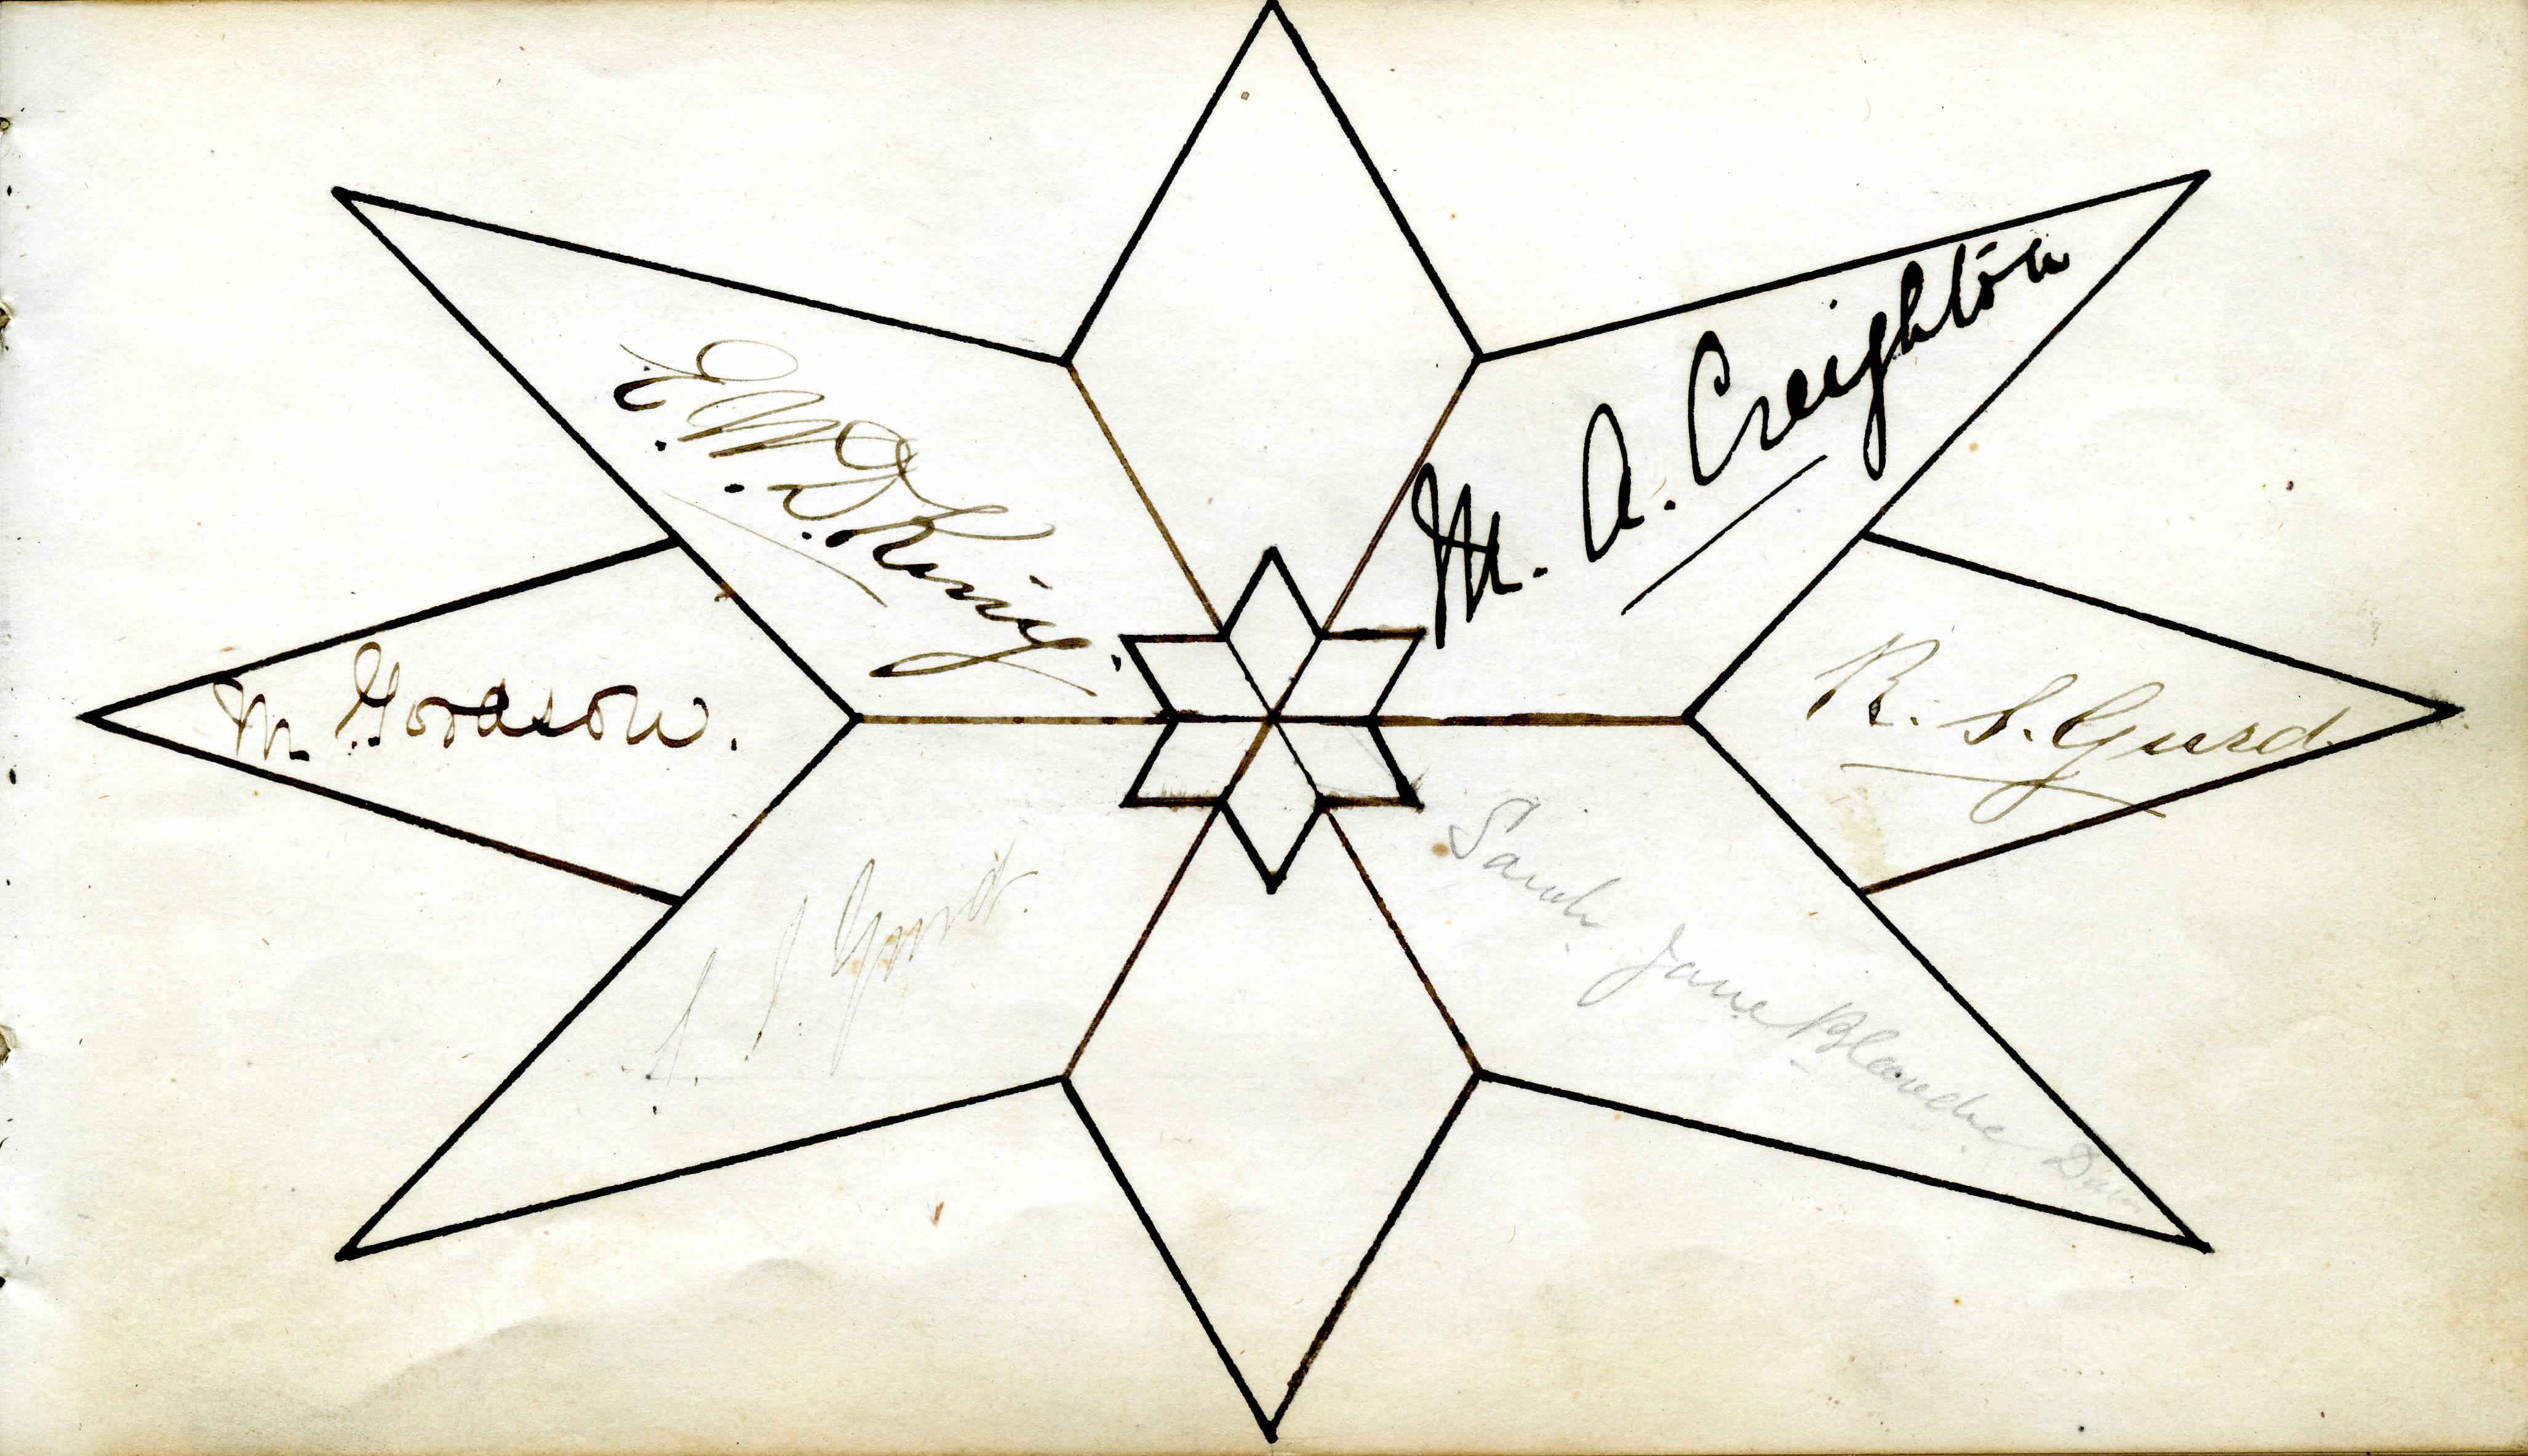 E. M. D. King.
M. A. Creighton
M. Goodson.
R. S. Gurd.
Gurd.
Sarah Jane Blanche